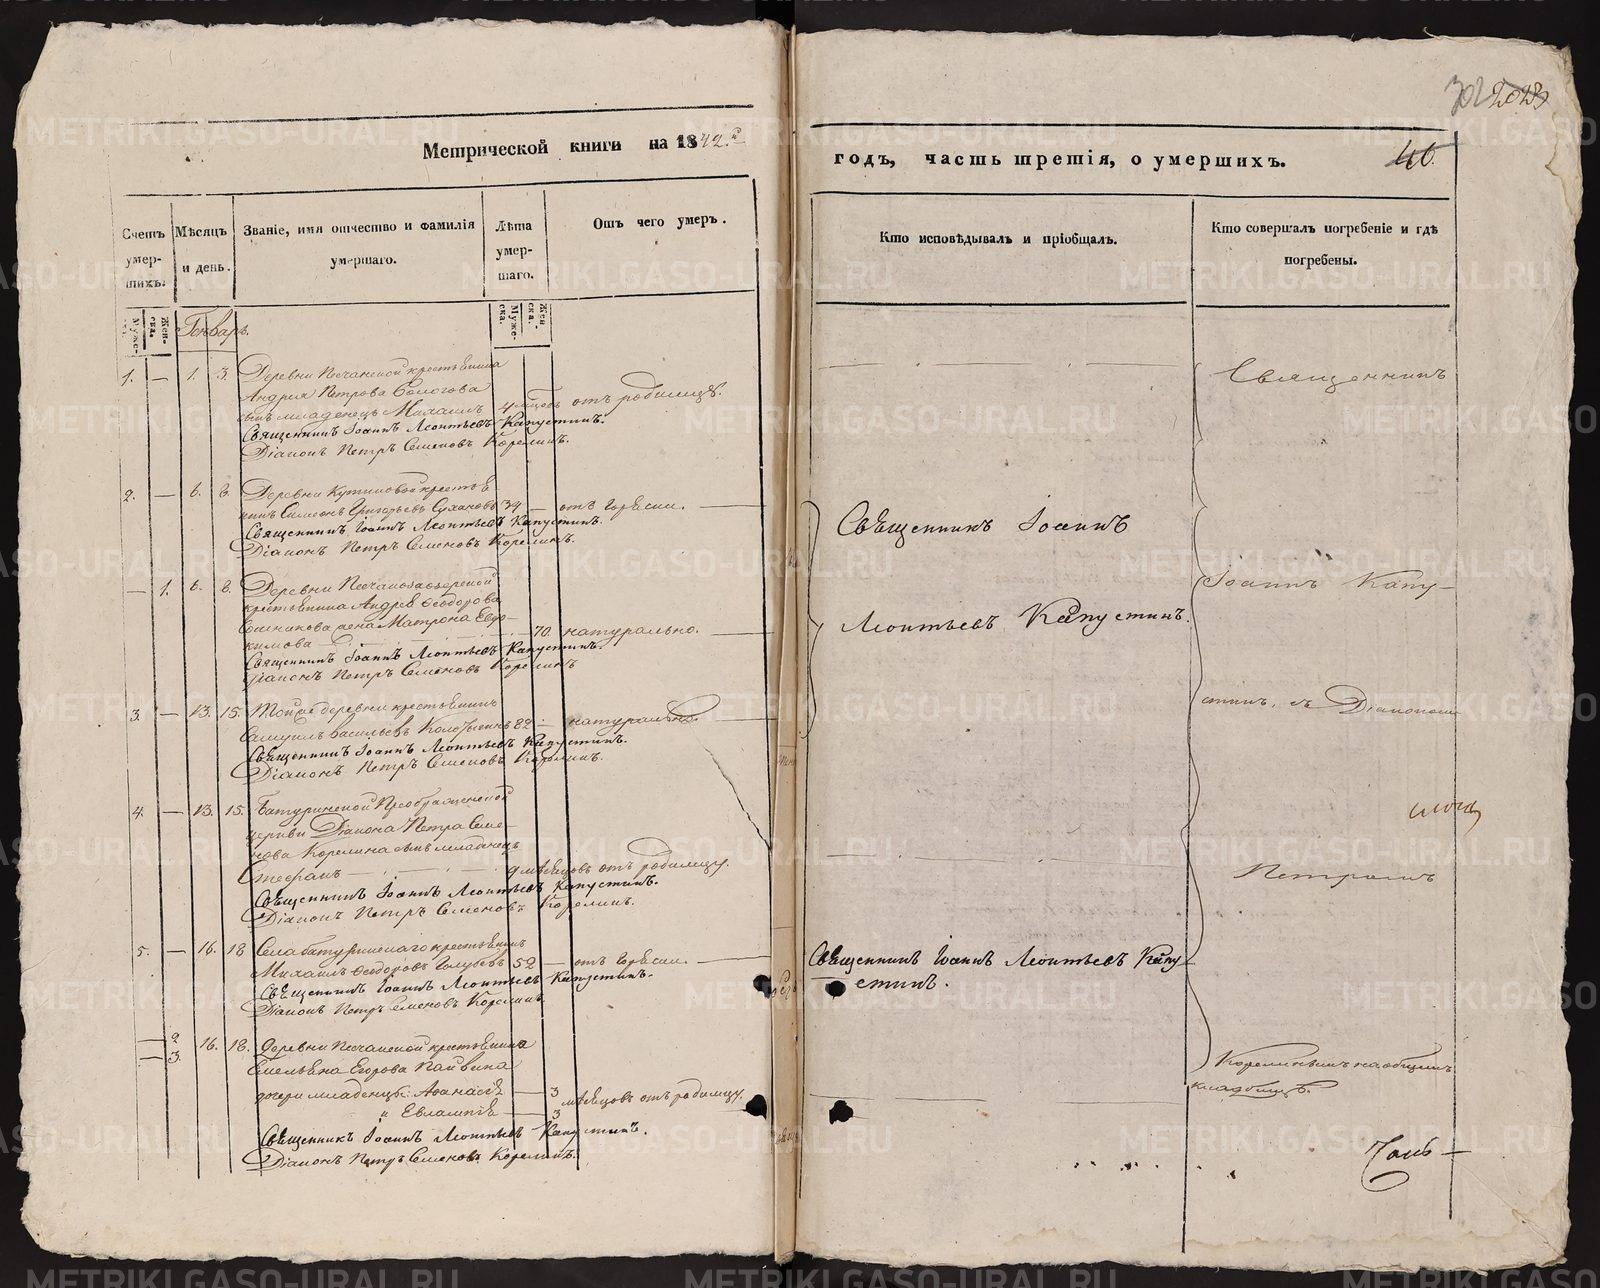 302
Метрической книги на 1842.й
Счетъ умер-шихъ.
Мѣсяцъ и день.
Званіе, имя отчество и фамилія умершаго.
Лѣта умер-шаго.
Отъ чего умеръ.
Муже-
Жен-ска.
Муже-ска.
Жен-ска.
Генварь.
1. — 1. 3. Деревни Песчанской крестьянина
Андрея Петрова
сынъ младенецъ Михаилъ 4 мѣсяцовъ отъ родимцу.
Священникъ Іоаннъ Леонтьевъ Капустинъ.
Діаконъ Петръ Семеновъ Корелинъ.
2. — 6. 8. Деревни крестья
нинъ Симеонъ Григорьевъ Сухановъ 34 — отъ горячки.
Священникъ Іоаннъ Леонтьевъ Капустинъ.
Діаконъ Петръ Семеновъ Корелинъ.
— 1. 6. 8. Деревни
крестьянина Андрея Ѳеодорова
жена Матрона Евдо-
кимова — 70. натурально.
Священникъ Іоаннъ Леонтьевъ Капустинъ.
Діаконъ Петръ Семеновъ Корелинъ
3. — 13. 15. Той же деревни крестьянинъ
Самуилъ Васильевъ 82 — натурально.
Священникъ Іоаннъ Леонтьевъ Капустинъ.
Діаконъ Петръ Семеновъ Корелинъ.
4. — 13. 15. Батуринской Преображенской
церкви Діакона Петра Семе-
нова Корелина сынъ младенецъ
Стефанъ — 9 мѣсяцовъ отъ родимцу.
Священникъ Іоаннъ Леонтьевъ Капустинъ.
Діаконъ Петръ Семеновъ Корелинъ.
5. — 16. 18 Села Батуринскаго крестьянинъ
Михаилъ Ѳеодоровъ Голубевъ 52 — отъ горячки.
Священникъ Іоаннъ Леонтьевъ Капустинъ.
Діаконъ Петръ Семеновъ Корелинъ
— 2
— 3. 16. 18. Деревни Песчанской крестьянина
Емельяна Егорова Пайвина
дочери младенцы: Аѳанасія — 3
и Евлампія — 3 мѣсяцовъ отъ родимцу.
Священникъ Іоаннъ Леонтьевъ Капустинъ.
Діаконъ Петръ Семеновъ Корелинъ.
годъ, часть третія, о умершихъ.
46.
Кто исповѣдывалъ и пріобщалъ.
Кто совершалъ погребеніе и гдѣ погребены.
Священникъ Іоаннъ
Леонтьевъ Капустинъ.
Священникъ Іоаннъ Леонтьевъ Капу
стинъ.
Священникъ
Іоаннъ Капу-
стинъ, съ Діакономъ
Петромъ
Корелинымъ на общемъ
кладбищѣ.
METRIKI.GASO-URAL.RU